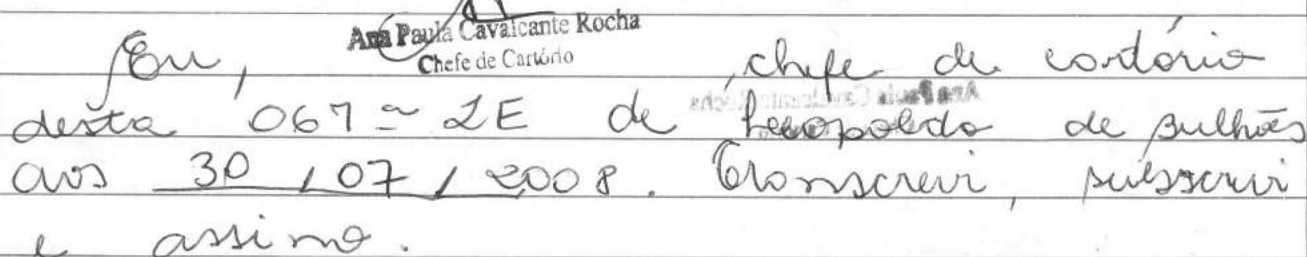 Ana Paula Cavalcante Rocha
Chefe de Cartório
Eu, , chefe de cartório
desta 067ª ZE de Leopoldo de Bulhões
aos 30 / 07 / 2008. Transcrevi, subscrevi
e assino.